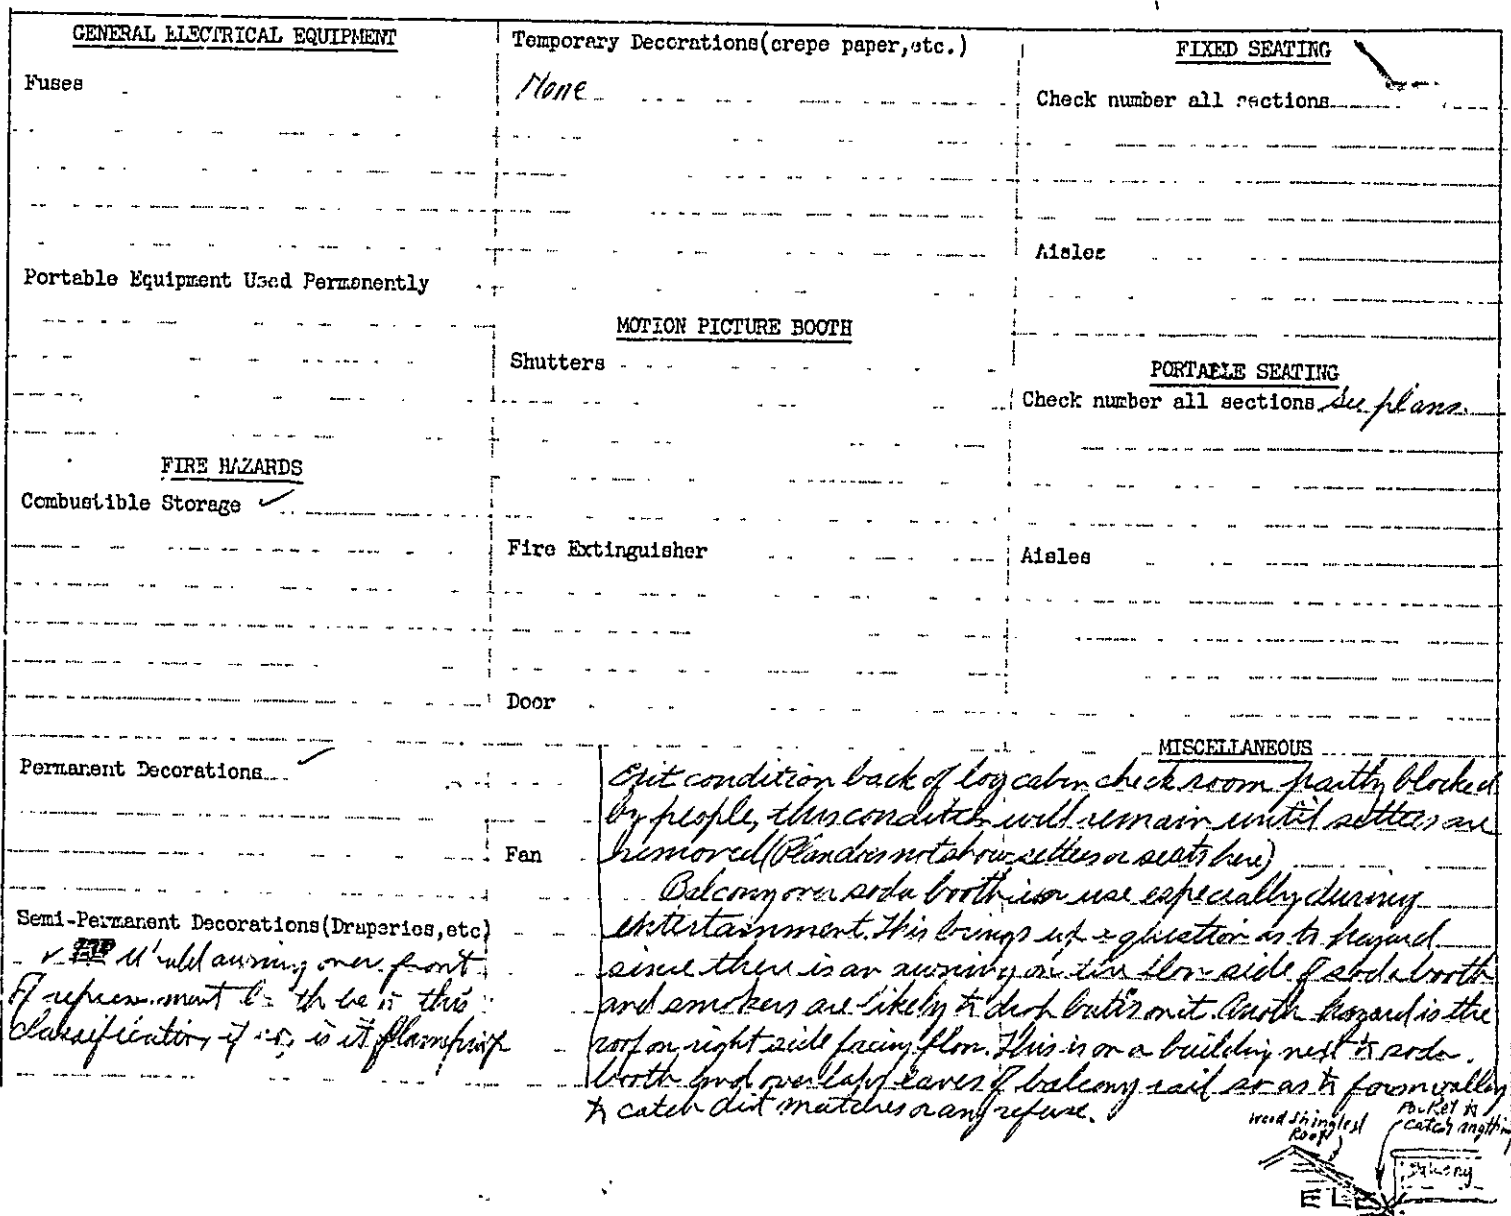 GENERAL ELECTRICAL EQUIPMENT
Fuses
Portable Equipment Used Permanently
FIRE HAZARDS
Combustible Storage ✓
Permanent Decorations ✓
Semi-Permanent Decorations(Draperies,etc)
✓ Would awning over front
of be in this
classification, if so, is it flameproof
Temporary Decorations(crepe paper,etc.)
None
MOTION PICTURE BOOTH
Shutters
Fire Extinguisher
Door
Fan
FIXED SEATING
Check number all sections
Aisles
PORTABLE SEATING
Check number all sections See plans.
Aisles
MISCELLANEOUS
Exit condition back of log cabin check room partly blocked
by people, this condition will remain until settees are
removed (Plan does not show settees or seats here)
Balcony over soda booth in use especially during
entertainment. This brings up a question as to hazard
since there is an awning on the floor side of soda booth
and smokers are likely to drop butts on it. Another hazard is the
roof on right side facing floor. This is on a building next to soda
booth and overlaps eaves of balcony rail so as to form valley
to catch dirt matches or any refuse.
Wood shingled
Roof
Pocket to
catch anything
Balcony
ELE